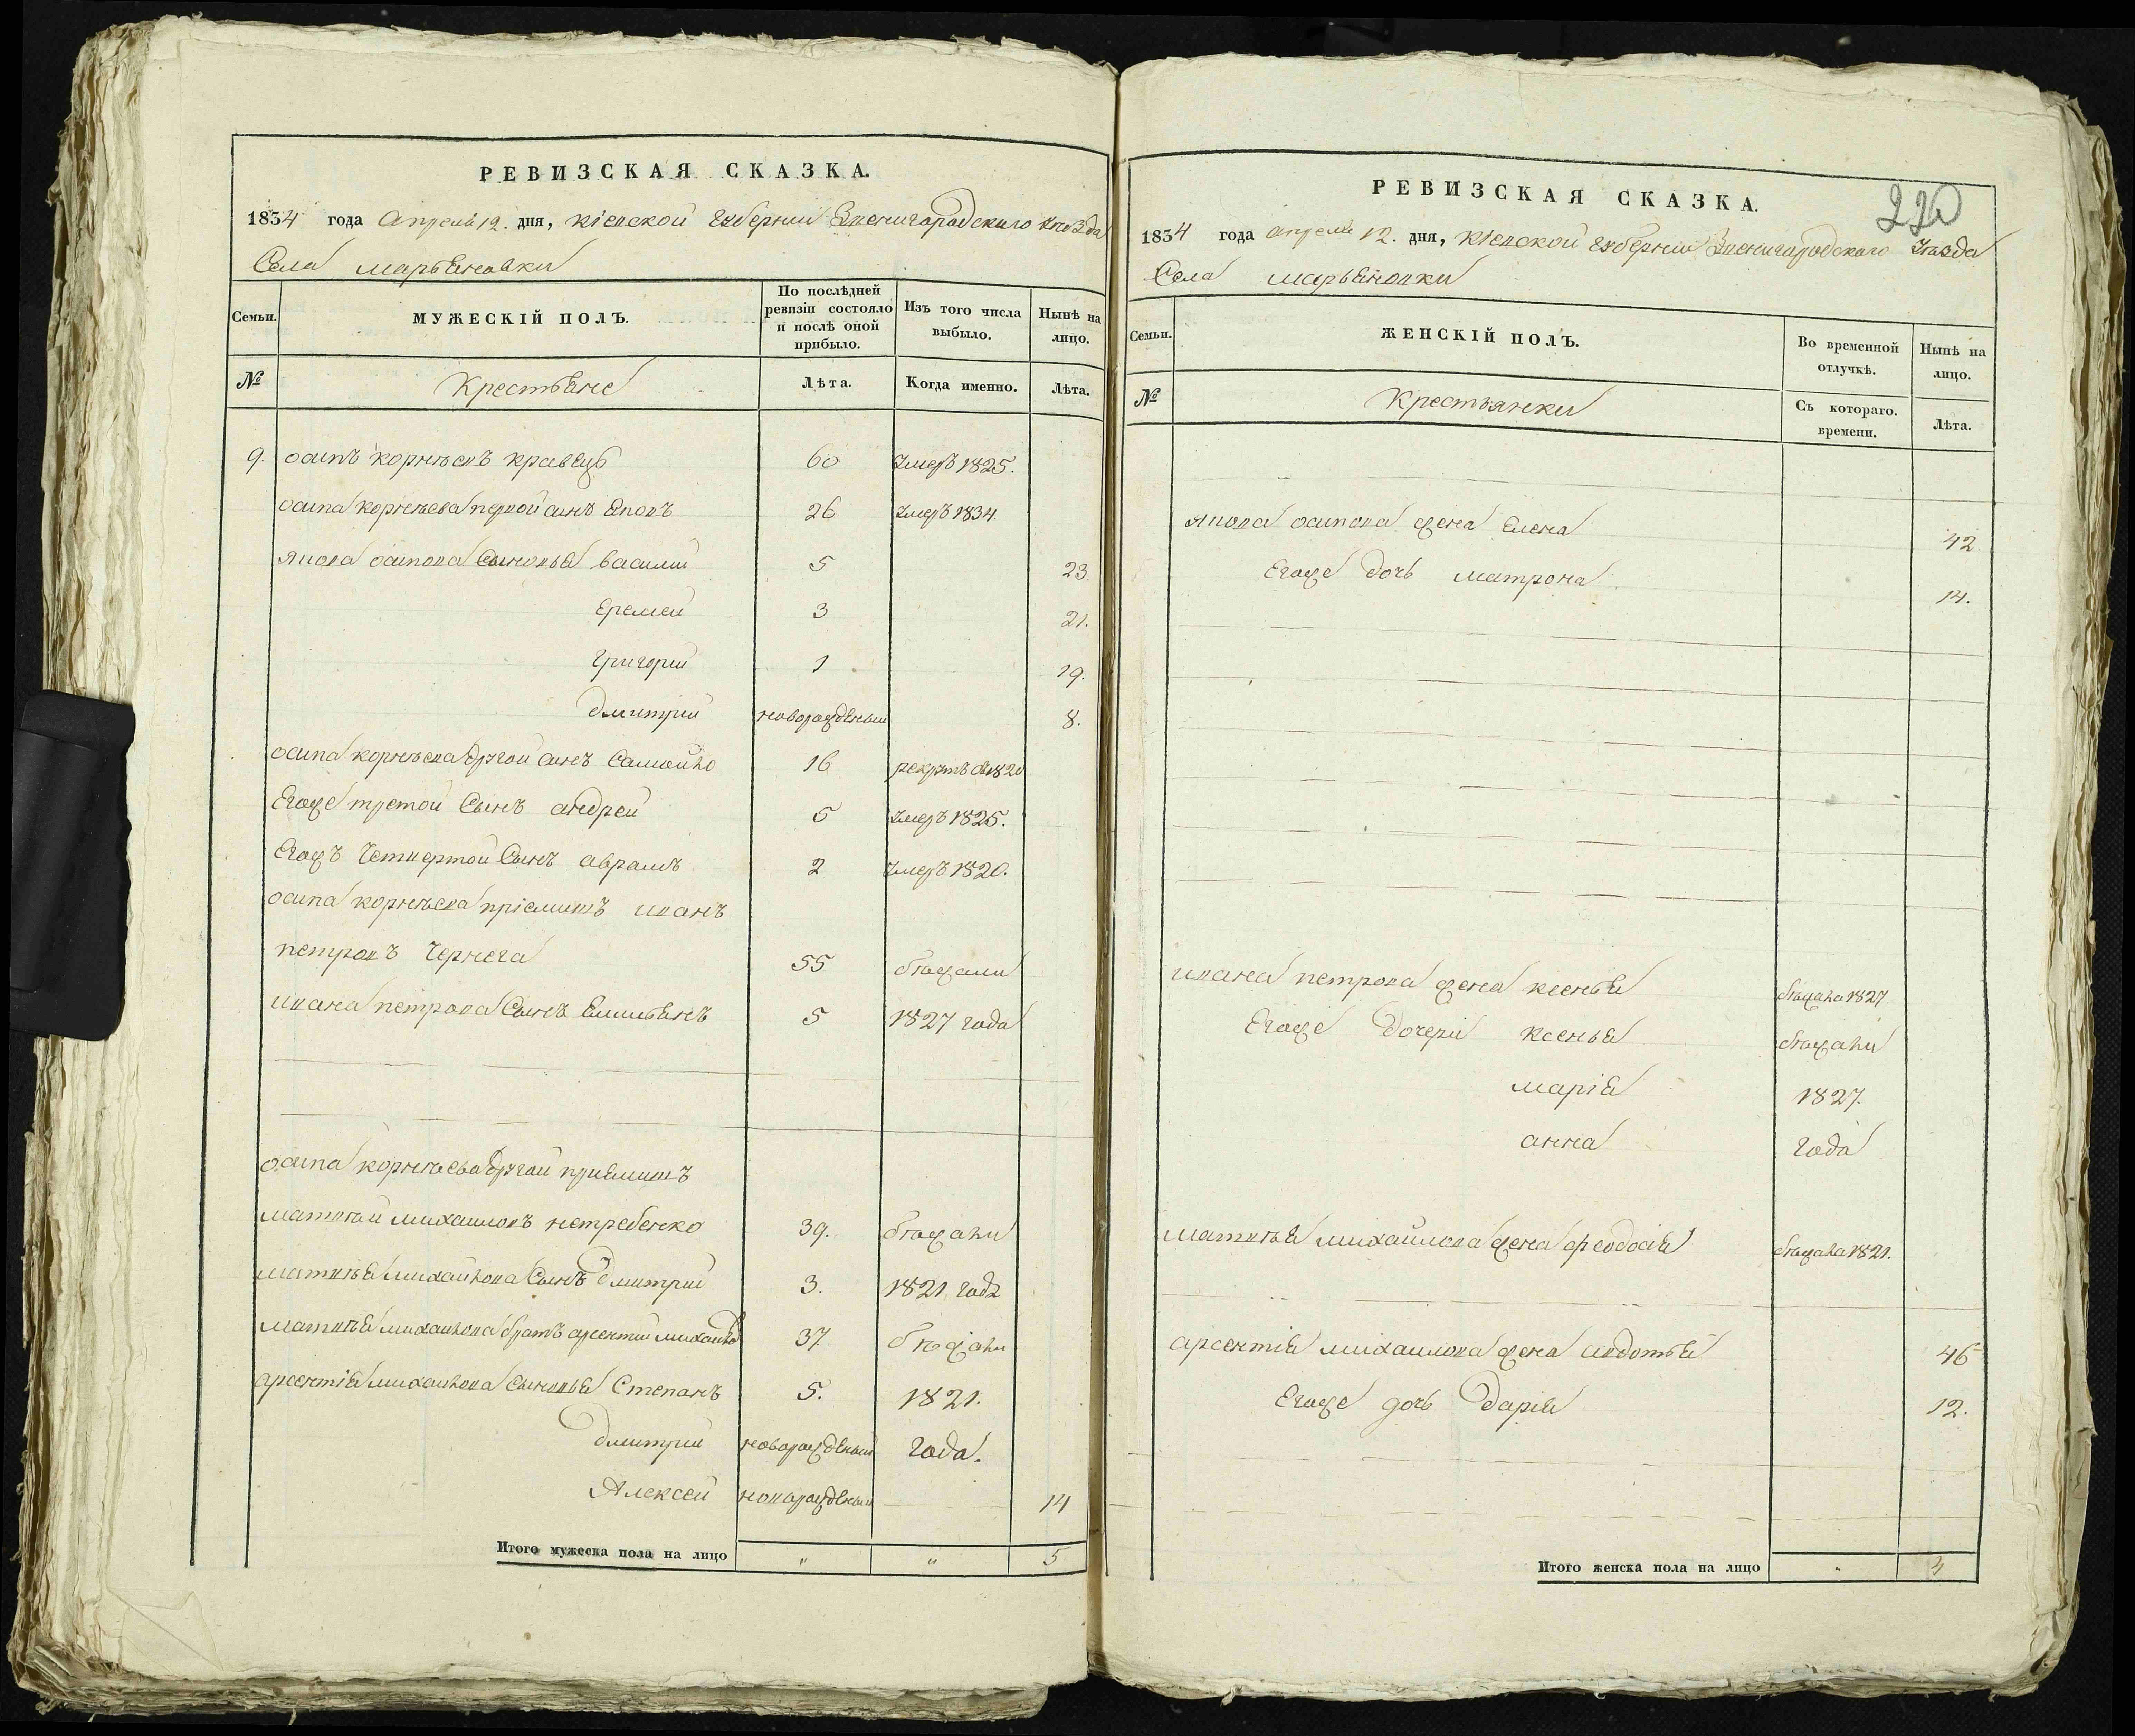 РЕВИЗСКАЯ СКАЗКА.
1834 года апреля 12. дня, Кіевской губерніи Звенигородского уѣзда
Села Марьяновки
Семьи.
МУЖЕСКІЙ ПОЛЪ.
По послѣдней ревизіи состояло и послѣ оной прибыло.
Изъ того числа выбыло.
Нынѣ на лицо.
№
Крестьяне
Лѣта.
Когда именно.
Лѣта.
9. осипъ корнѣевъ кравецъ 60 умеръ 1825.
осипа корнѣева первой сынъ Яковъ 26 умеръ 1834.
Якова осипова Сыновья василий 5 23
Еремей 3 21.
григорий 1 19.
дмитрий новорожденый 8.
осипа корнѣева другой сынъ Самойло 16 рекрутъ 1820
Егоже третой Сынъ андрей 5 умеръ 1825.
Егожъ Четвертой Сынъ аврамъ 2 умеръ 1820.
осипа корнѣева пріемишъ иванъ
петровъ Чернега 55 бѣжали
ивана петрова Сынъ Емильянъ 5 1827 года
осипа корнѣева другой приемишъ
матвѣй михаиловъ нетребенко 39. бѣжали
матвѣя михайлова Сынъ дмитрий 3. 1821 года
матвѣя михаилова братъ арсентий михаило 37 бѣжали
арсентія михаилова Сыновья Степанъ 5. 1821.
Дмитрий новорожденый года.
Алексей новорожденый 14
Итого мужеска пола на лицо " " 5
РЕВИЗСКАЯ СКАЗКА.
220
1834 года апреля 12. дня, Кіевской губерніи Звенигородского уѣзда
Села Марьяновки
Семьи.
ЖЕНСКІЙ ПОЛЪ.
Во временной отлучкѣ.
Нынѣ на лицо.
№
Крестьянки
Съ котораго. времени.
Лѣта.
Якова осипова жена Елена 42
Егоже дочь матрона 14.
ивана петрова жена ксенья бѣжала 1827
Егоже дочери ксенья бѣжали
марія 1827.
анна года
матвѣя михайлова жена феодосія бѣжала 1821.
арсентія михаилова жена авдотья 46
Егоже дочь дарія 12.
Итого женска пола на лицо " 4